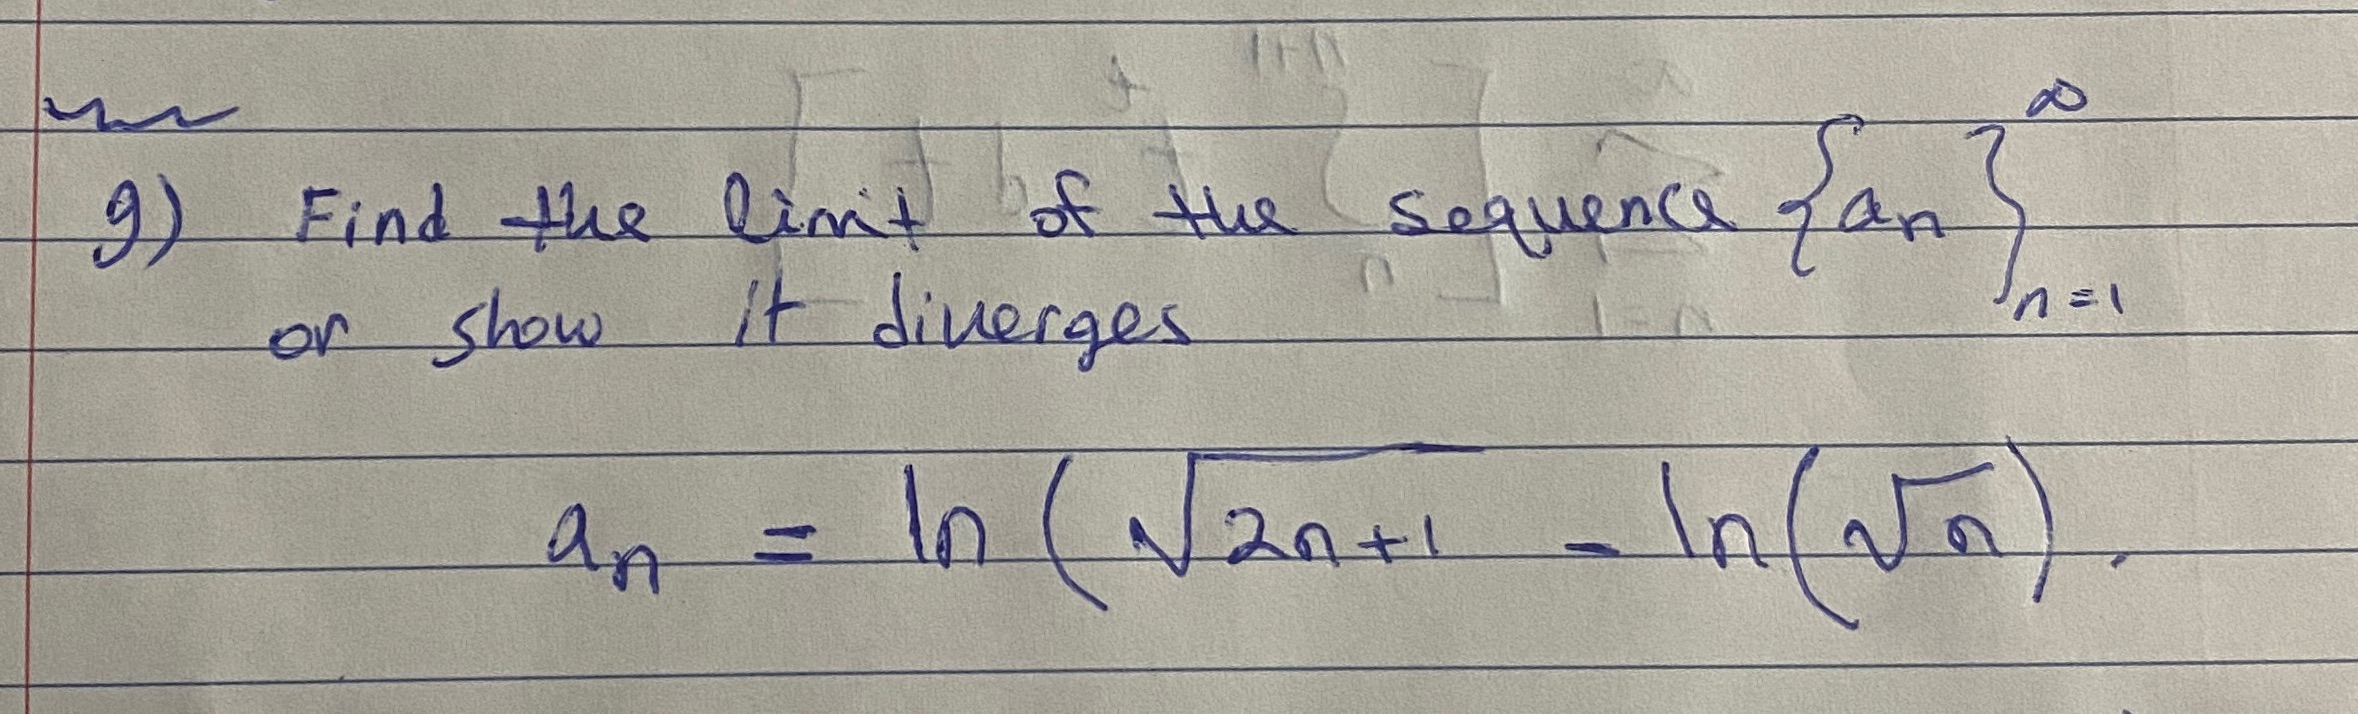 9) Find the limit of the sequence {aₙ}∞ₙ₌₁
or show it diverges
aₙ = ln (√2n+1 - ln(√n).